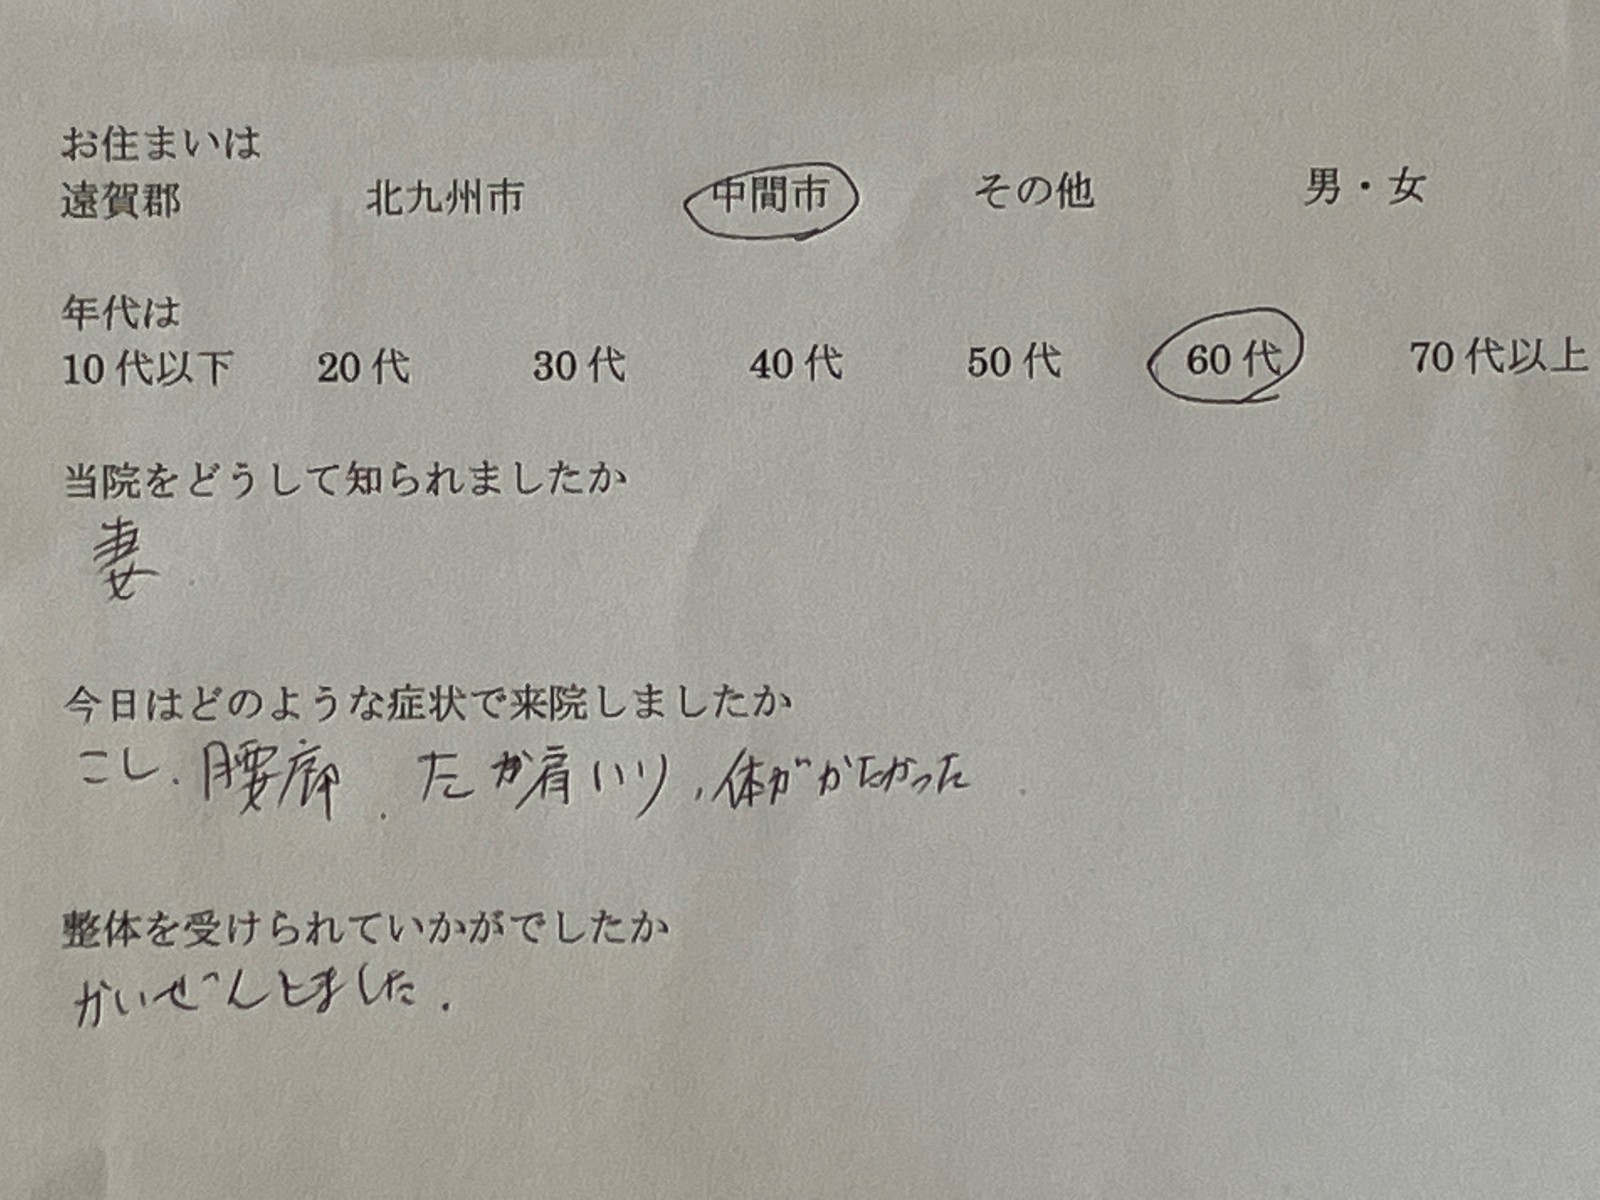 お住まいは
遠賀郡 北九州市 中間市 その他 男・女
年代は
10代以下 20代 30代 40代 50代 60代 70代以上
当院をどうして知られましたか
妻
今日はどのような症状で来院しましたか
こし、腰 肩 体がかたかった
整体を受けられていかがでしたか
かいぜんしました.